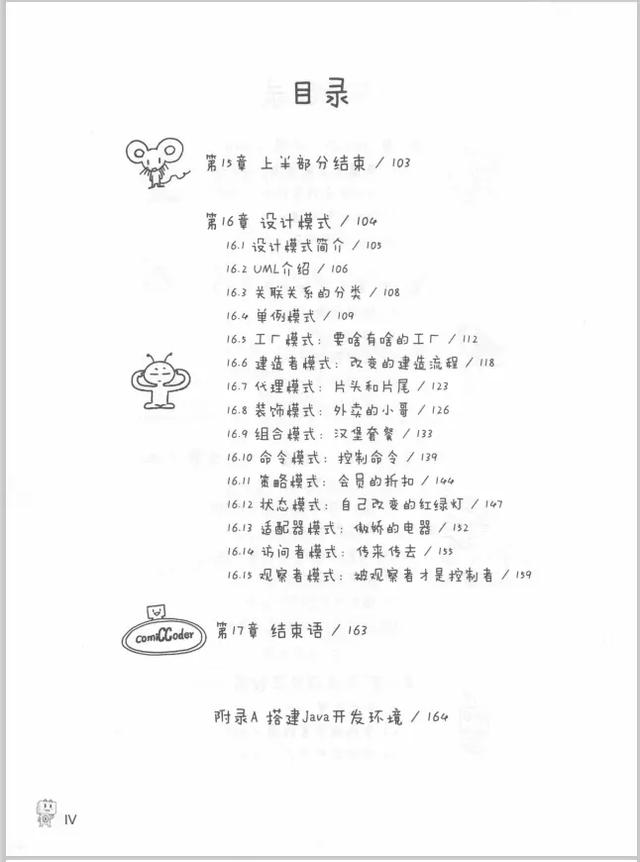 目录
第15章 上半部分结束 / 103
第16章 设计模式 / 104
16.1 设计模式简介 / 105
16.2 UML介绍 / 106
16.3 关联关系的分类 / 108
16.4 单例模式 / 109
16.5 工厂模式：要啥有啥的工厂 / 112
16.6 建造者模式：改变的建造流程 / 118
16.7 代理模式：片头和片尾 / 123
16.8 装饰模式：外卖的小哥 / 126
16.9 组合模式：汉堡套餐 / 133
16.10 命令模式：控制命令 / 139
16.11 策略模式：会员的折扣 / 144
16.12 状态模式：自己改变的红绿灯 / 147
16.13 适配器模式：傲娇的电器 / 152
16.14 访问者模式：传来传去 / 155
16.15 观察者模式：被观察者才是控制者 / 159
comiCCoder
第17章 结束语 / 163
附录A 搭建Java开发环境 / 164
IV